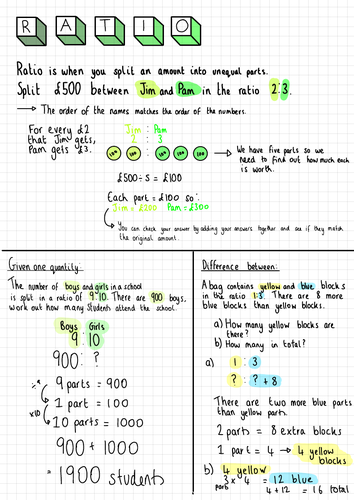 RATIO
Ratio is when you split an amount into unequal parts.
Split £500 between Jim and Pam in the ratio 2:3.
→ The order of the names matches the order of the numbers.
For every £2
that Jim gets,
Pam gets £3.
Jim : Pam
2 : 3
100 100 : 100 100 100
→ We have five parts so we
need to find out how much each
is worth.
£500÷5 = £100
Each part = £100 so:
Jim = £200 Pam = £300
You can check your answer by adding your answers together and see if they match
the original amount.
Given one quantity:
The number of boys and girls in a school
is split in a ratio of 9:10. There are 900 boys,
work out how many students attend the school.
Boys Girls
9 : 10
900 : ?
÷9
9 parts = 900
1 part = 100
×10
10 parts = 1000
900 + 1000
= 1900 students
Difference between:
A bag contains yellow and blue blocks
in the ratio 1:3. There are 8 more
blue blocks than yellow blocks.
a) How many yellow blocks are
there?
b) How many in total?
a) 1 : 3
? : ? + 8
There are two more blue parts
than yellow parts.
2 parts = 8 extra blocks
1 part = 4 → 4 yellow
blocks
b) 4 yellow
3 × 4 = 12 blue
parts
4 + 12 = 16 total